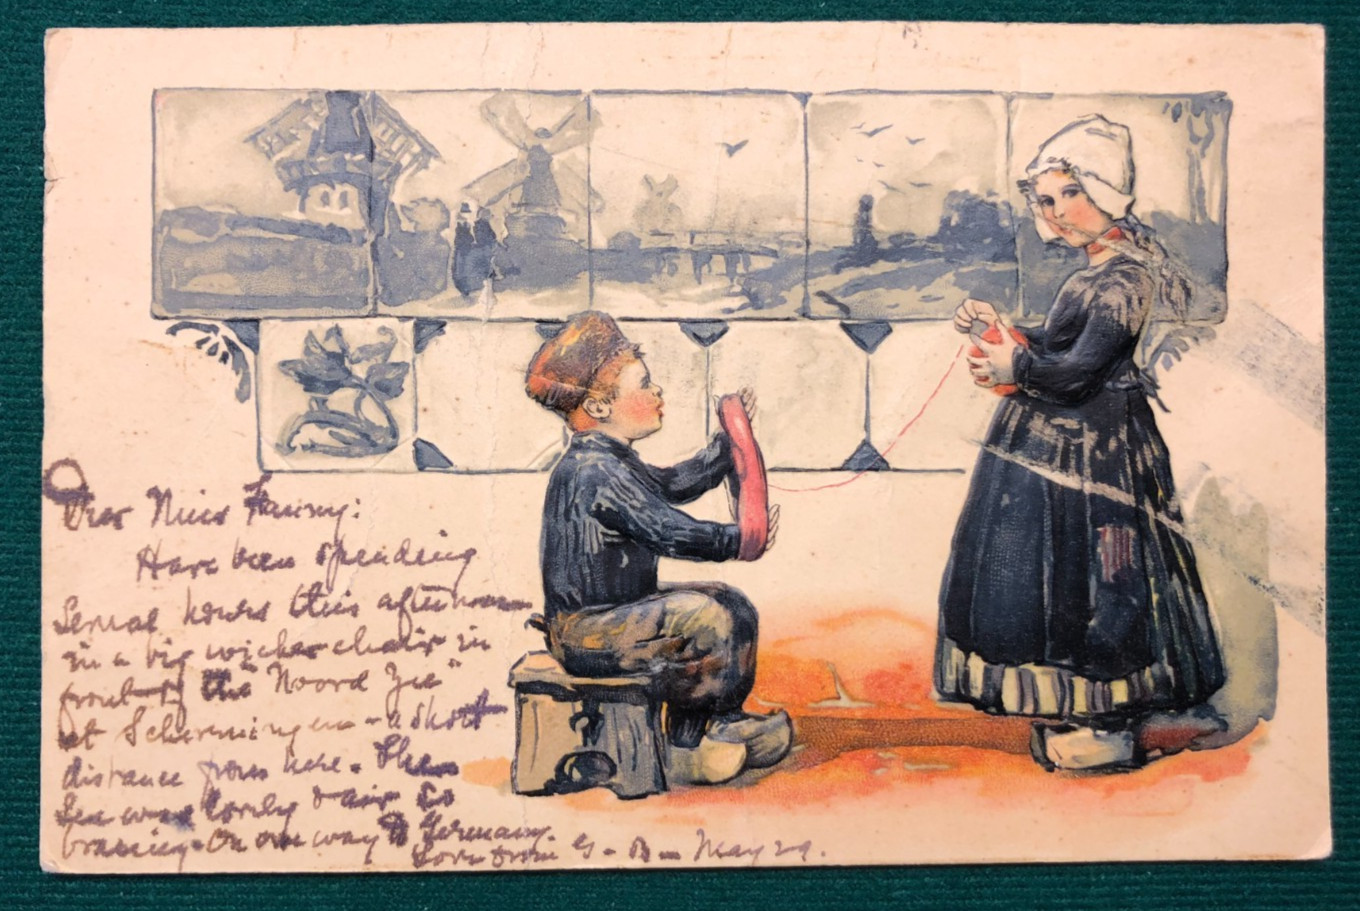 Dear Miss Fanny:
Have been spending
several hours this afternoon
in a big wicker chair in
front of the "Noord Zee"
at Scheveningen - a short
distance from here. The
Sea was lovely & air so
bracing. On our way to Germany.
Love from G - B - May 29.